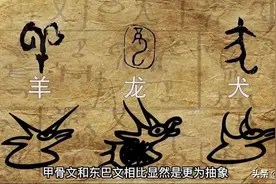 羊 龙 犬
甲骨文和东巴文相比显然是更为抽象
头条